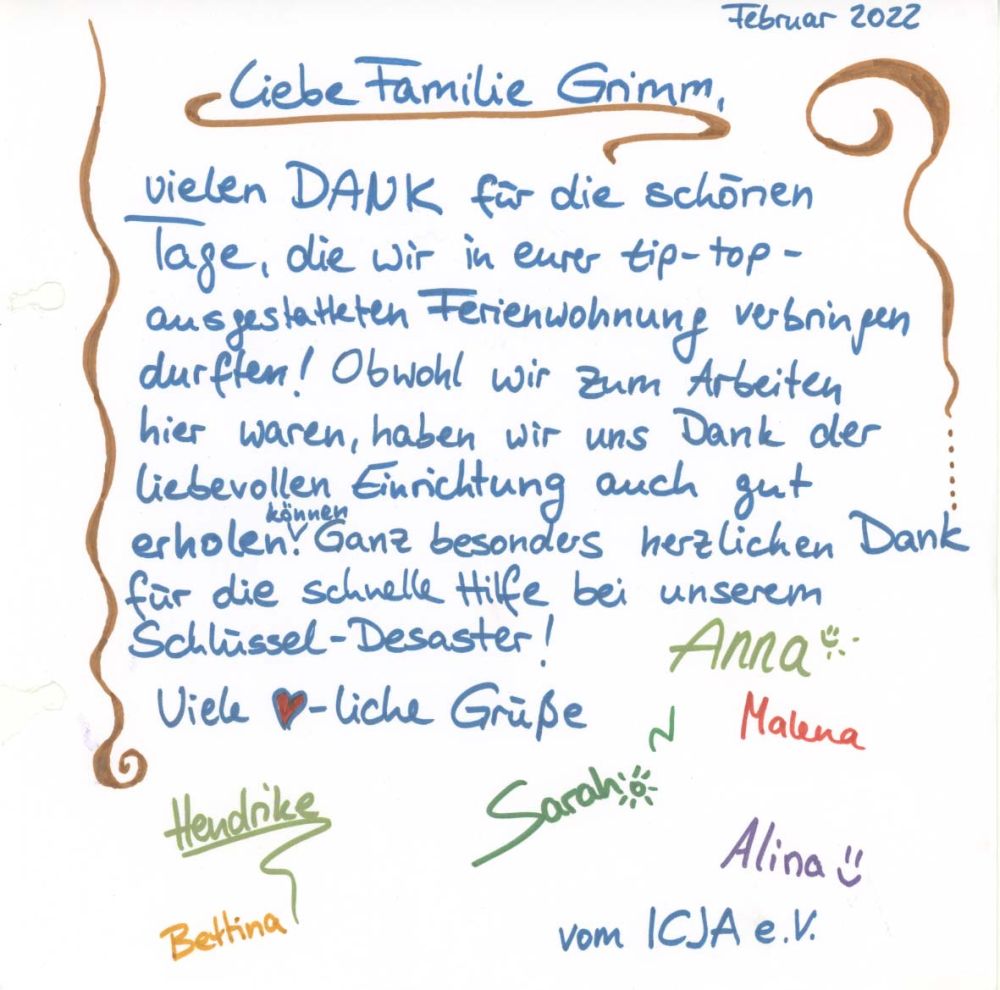 Februar 2022
Liebe Familie Grimm,
vielen DANK für die schönen
Tage, die wir in eurer tip-top-
ausgestatteten Ferienwohnung verbringen
durften! Obwohl wir zum Arbeiten
hier waren, haben wir uns Dank der
liebevollen Einrichtung auch gut
können
erholen. Ganz besonders herzlichen Dank
für die schnelle Hilfe bei unserem
Schlüssel-Desaster!
Viele ♥-liche Grüße
Anna
Malena
Sarah
Hendrike
Alina
Bettina
vom ICJA e.V.